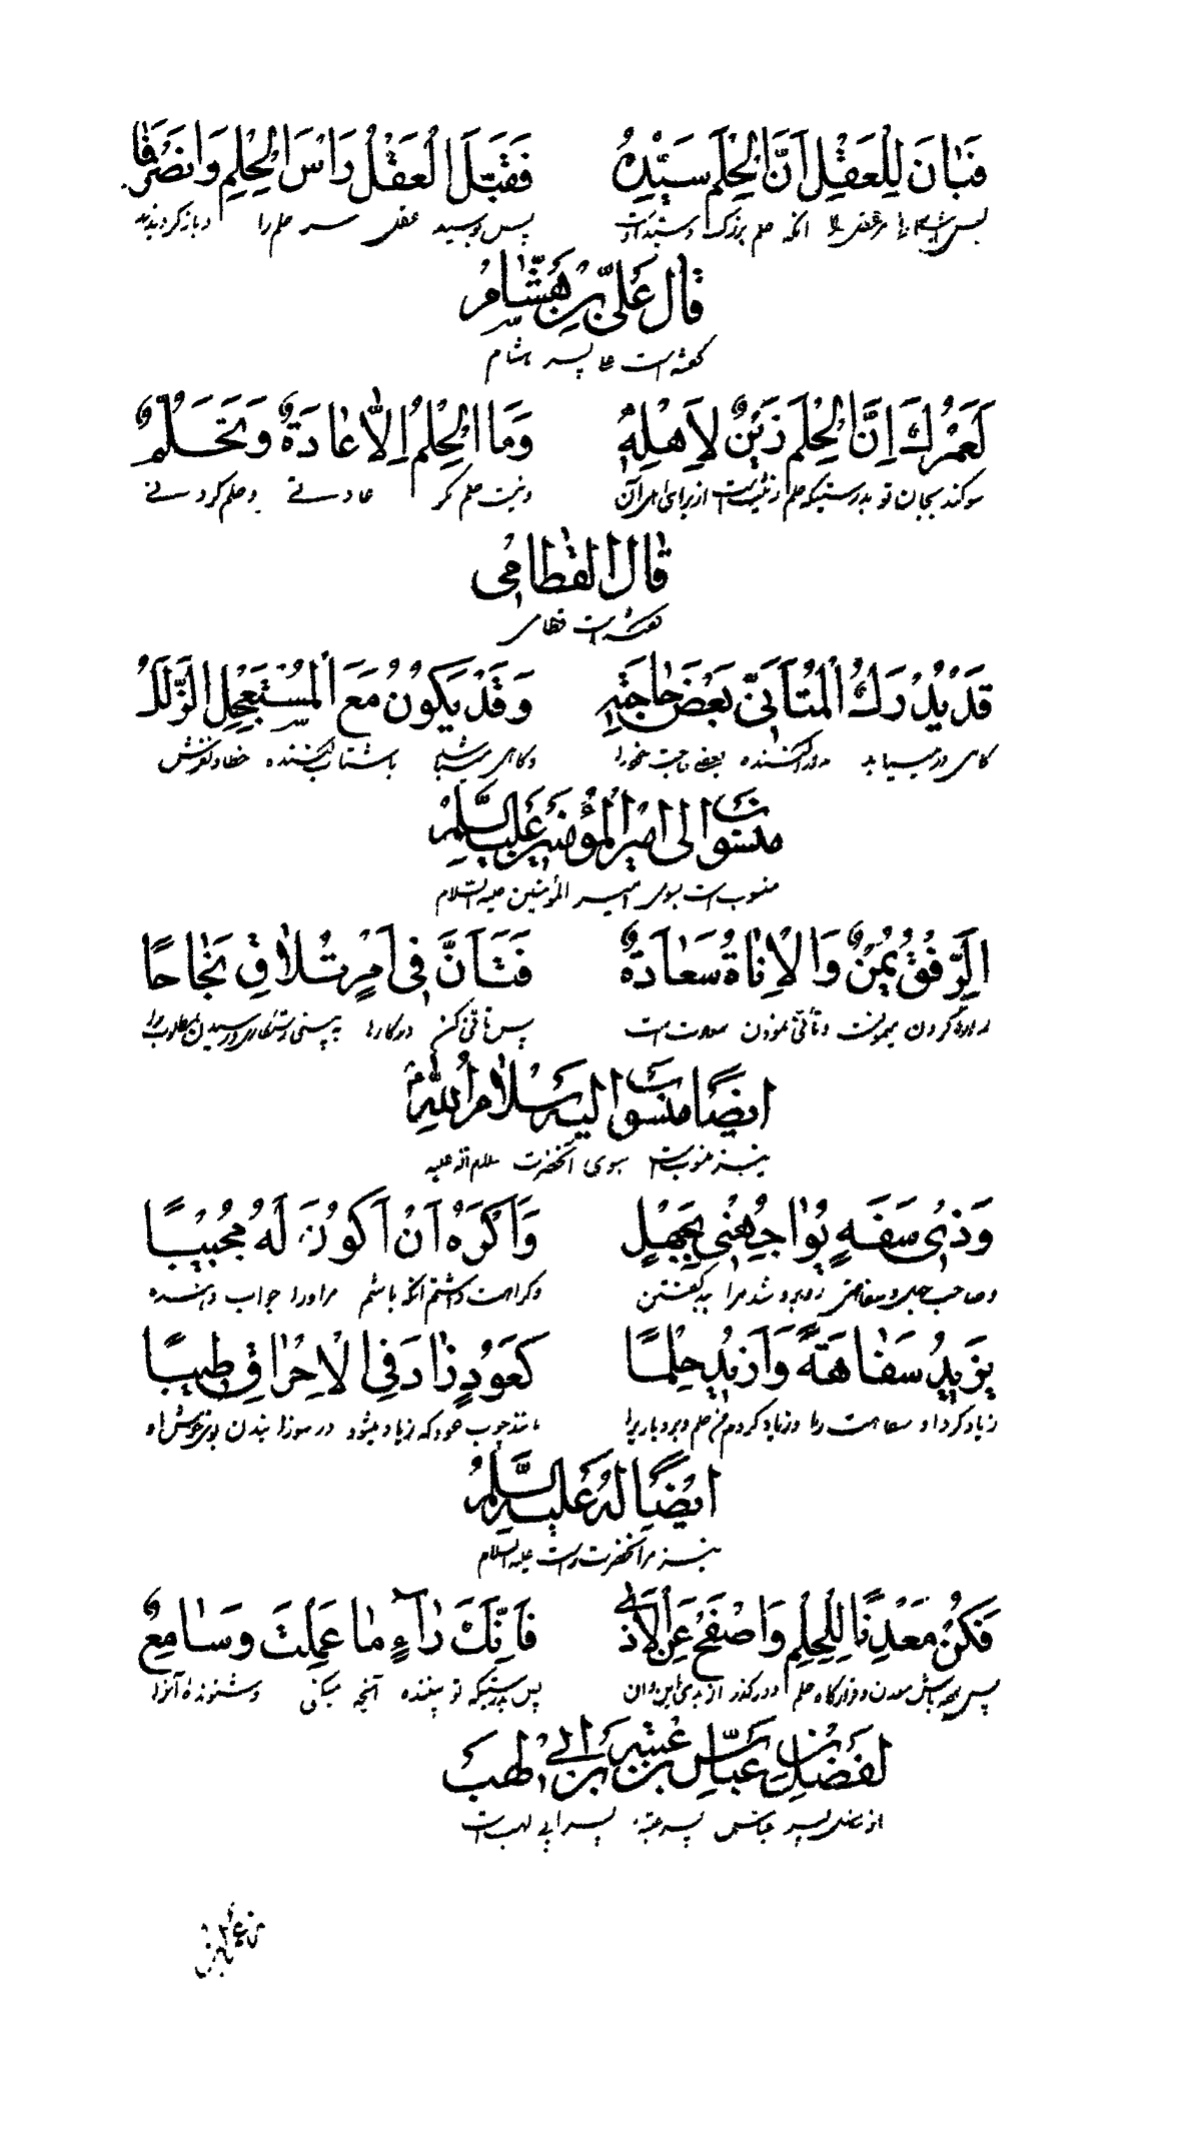 فَبٰانَ لِلعَقْلِ اَنَّ الحِلْمَ سَيِّدُهُ فَقَبَّلَ العَقْلُ رَاْسَ الحِلْمِ وَانصَرَفٰا
پس بوسید عقل سر حلم را
قالَ عَلىُّ بْنُ هِشٰامٍ
گفته است پسر هشام
لَعَمْرُكَ اِنَّ الحِلْمَ زَيْنٌ لِاَهْلِهِ وَمَا الحِلْمُ اِلّٰا عٰادَةٌ وَتَحَلُّمٌ
سوکند بجان تو بدرستیکه حلم زینت است از برای اهل آن ونیست حلم مکر عادتے وحلم کردنے
قٰالَ القُطٰامِى
گفته است قطامی
قَدْ يُدْرِكُ الْمُتَاَنّىِ بَعْضَ حٰاجَتِهِ وَقَدْ يَكُونُ مَعَ الْمُسْتَعْجِلِ الزَّلَلُ
کاهی درمییابد بعضے حاجت خود را وکاهی میباشد با شتاب کننده خطا ولغزش
مَنسُوبٌ اِلىٰ اَميرِ المُؤمِنينَ عَلَيهِ السَّلٰمُ
منسوب است بسوی امیر المؤمنین علیه السّلام
الَرِّفْقُ يُمْنٌ وَالْاَنٰاةُ سَعٰادَةٌ فَتَأَنَّ فِى اَمْرٍ تُلٰاقِ نَجٰاحًا
مدارا کردن میمونست وتأنّی نمودن سعادت است پس تأنّی کن در کارها
ايضًا مَنسُوبٌ اِلَيهِ سَلٰامُ اللّٰهِ
نیز منسوبست بسوی آنحضرت سلام الله علیه
وَذى سَفَهٍ يُوٰاجِهُنى بِجَهْلٍ وَاَكْرَهُ اَنْ اَكُونَ لَهُ مُجيبًا
روبرو شد مرا بد کفتن وکراهت داشتم انکه باشم مر اورا جواب دهنده
يَزيدُ سَفٰاهَةً وَاَزيدُ حِلْمًا كَعَوْدٍ زٰادَ فِى الْاِحْرٰاقِ طيبًا
زیاد کرد او سفاهت را وزیاد کردم من حلم وبردباریرا مانند چوب عود که زیاد میشود در سوزانیدن بوی خوش او
ايضًا لَهُ عَلَيهِ السَّلٰمُ
نیز مر آنحضرت راست علیه السلام
فَكُنْ مَعْدِنًا لِلحِلْمِ وَاصْفَحْ عَنِ الْاَذىٰ فَاِنَّكَ رٰاءٍ مٰا عَمِلْتَ وَسٰامِعٌ
پس بدرستیکه تو بیننده آنچه میکنی وشنونده آنرا
لِفَضْلِ بْنِ عَبّاسِ بْنِ عُتْبَةَ بْنِ اَبى لَهَبٍ
از فضل پسر عباس پسر عتبه پسر ابی لهب است